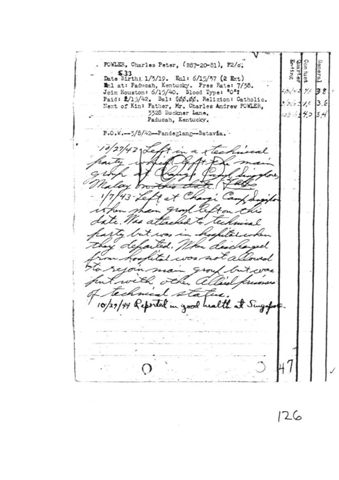 FOWLER, Charles Peter, (287-20-81), F2/c.
S33
Date Birth: 1/3/19. Enl: 6/15/37 (2 Ext)
Enl at: Paducah, Kentucky. Pres Rate: 7/38.
Join Houston: 6/15/40. Blood Type: "O"
Paid: 2/15/42. Religion: Catholic.
Next of Kin: Father, Mr. Charles Andrew FOWLER,
3328 Buckner Lane,
Paducah, Kentucky.
P.O.W.--3/8/42--Pandeglang--Batavia.
10/27/42 Left in a technical
party which left the main
group at Changi Camp, Singapore,
Malay on this date.
1/7/43 Left at Changi Camp, Singapore
when main group left on this
date. Was attached to technical
party but was in hospital when
they departed. When discharged
from hospital was not allowed
to rejoin main group but was
put with other Allied prisoners
of technical status.
10/29/44 Reported in good health at Singapore
Rating
Quarter
Conduct
General
3.8
3.6
4.0 3.4
47
126